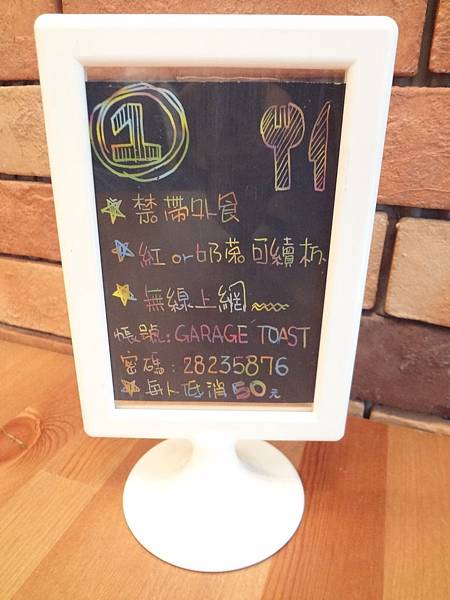 1
禁帶外食
紅or奶茶可續杯
無線上網~~~
帳號:GARAGE TOAST
密碼:28235876
每人低消50元